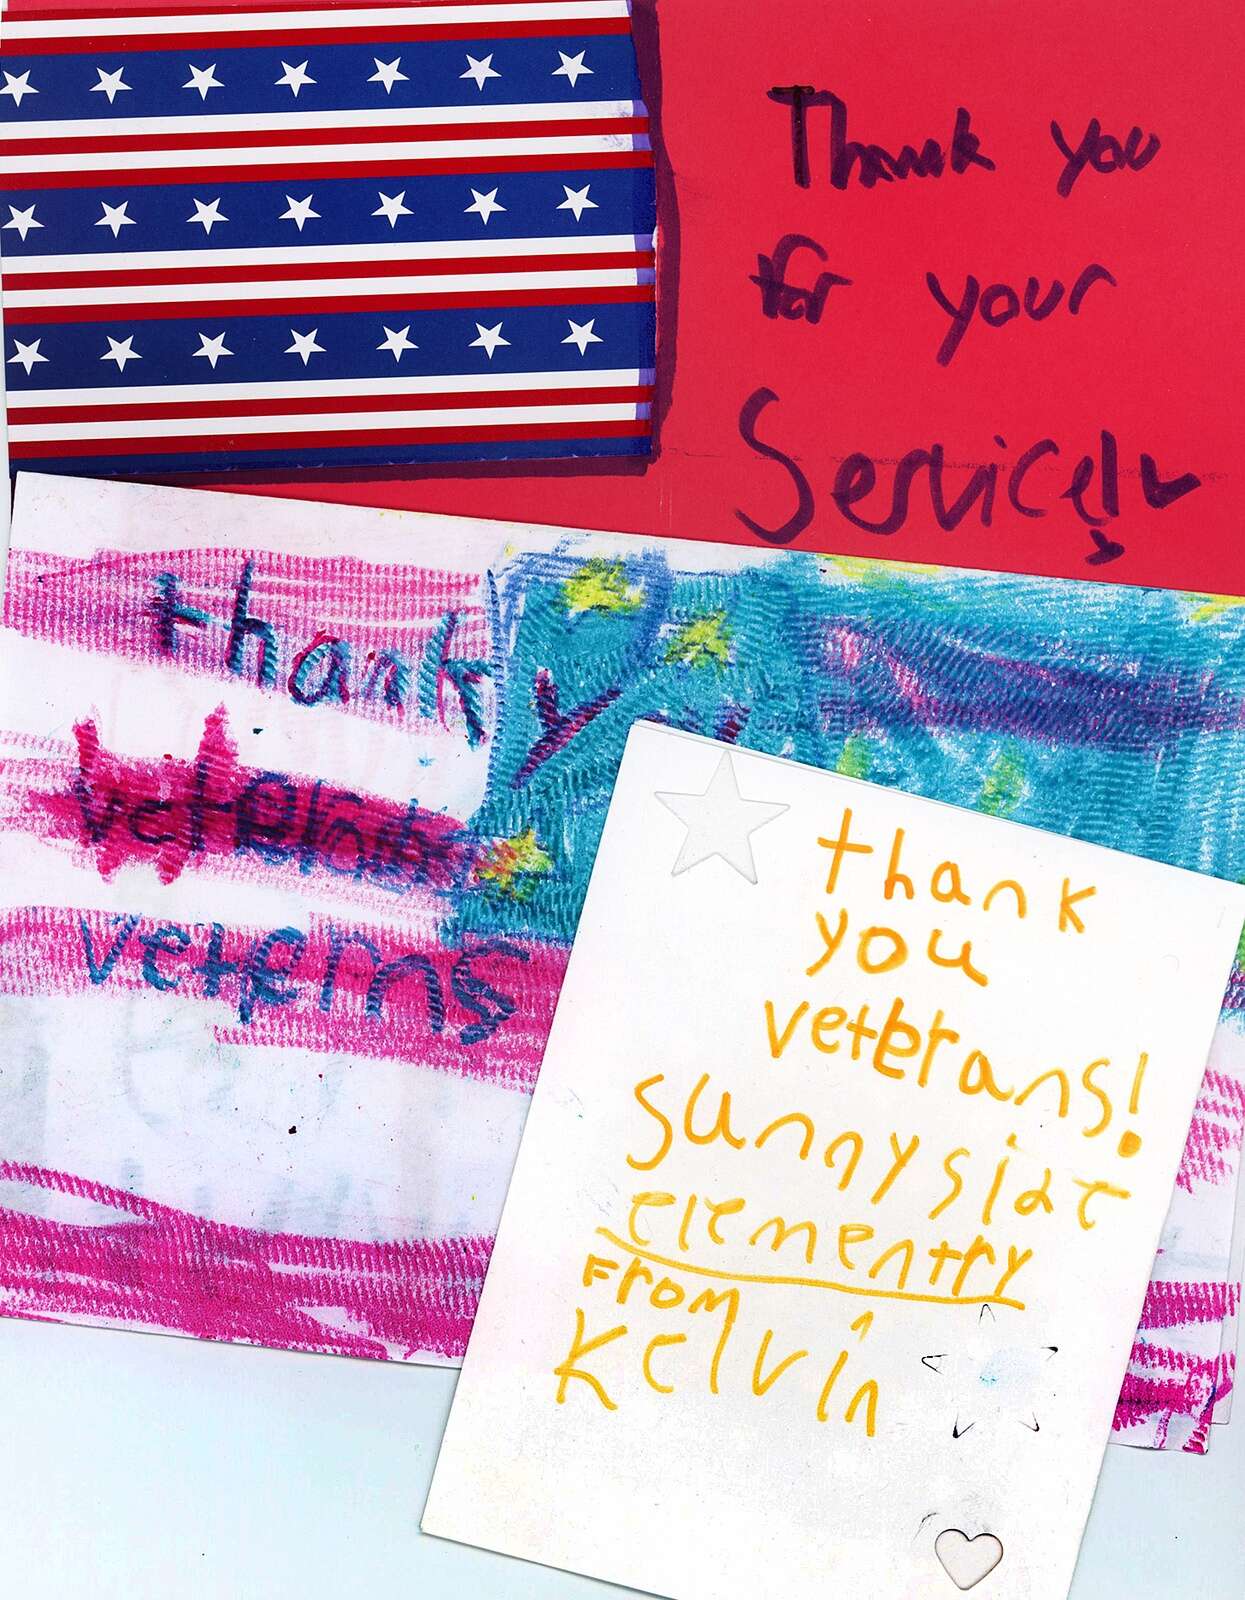 Thank you
for your
Service!
thank y
veterns
thank
you
veterans!
sunnyside
elementry
From
Kelvin